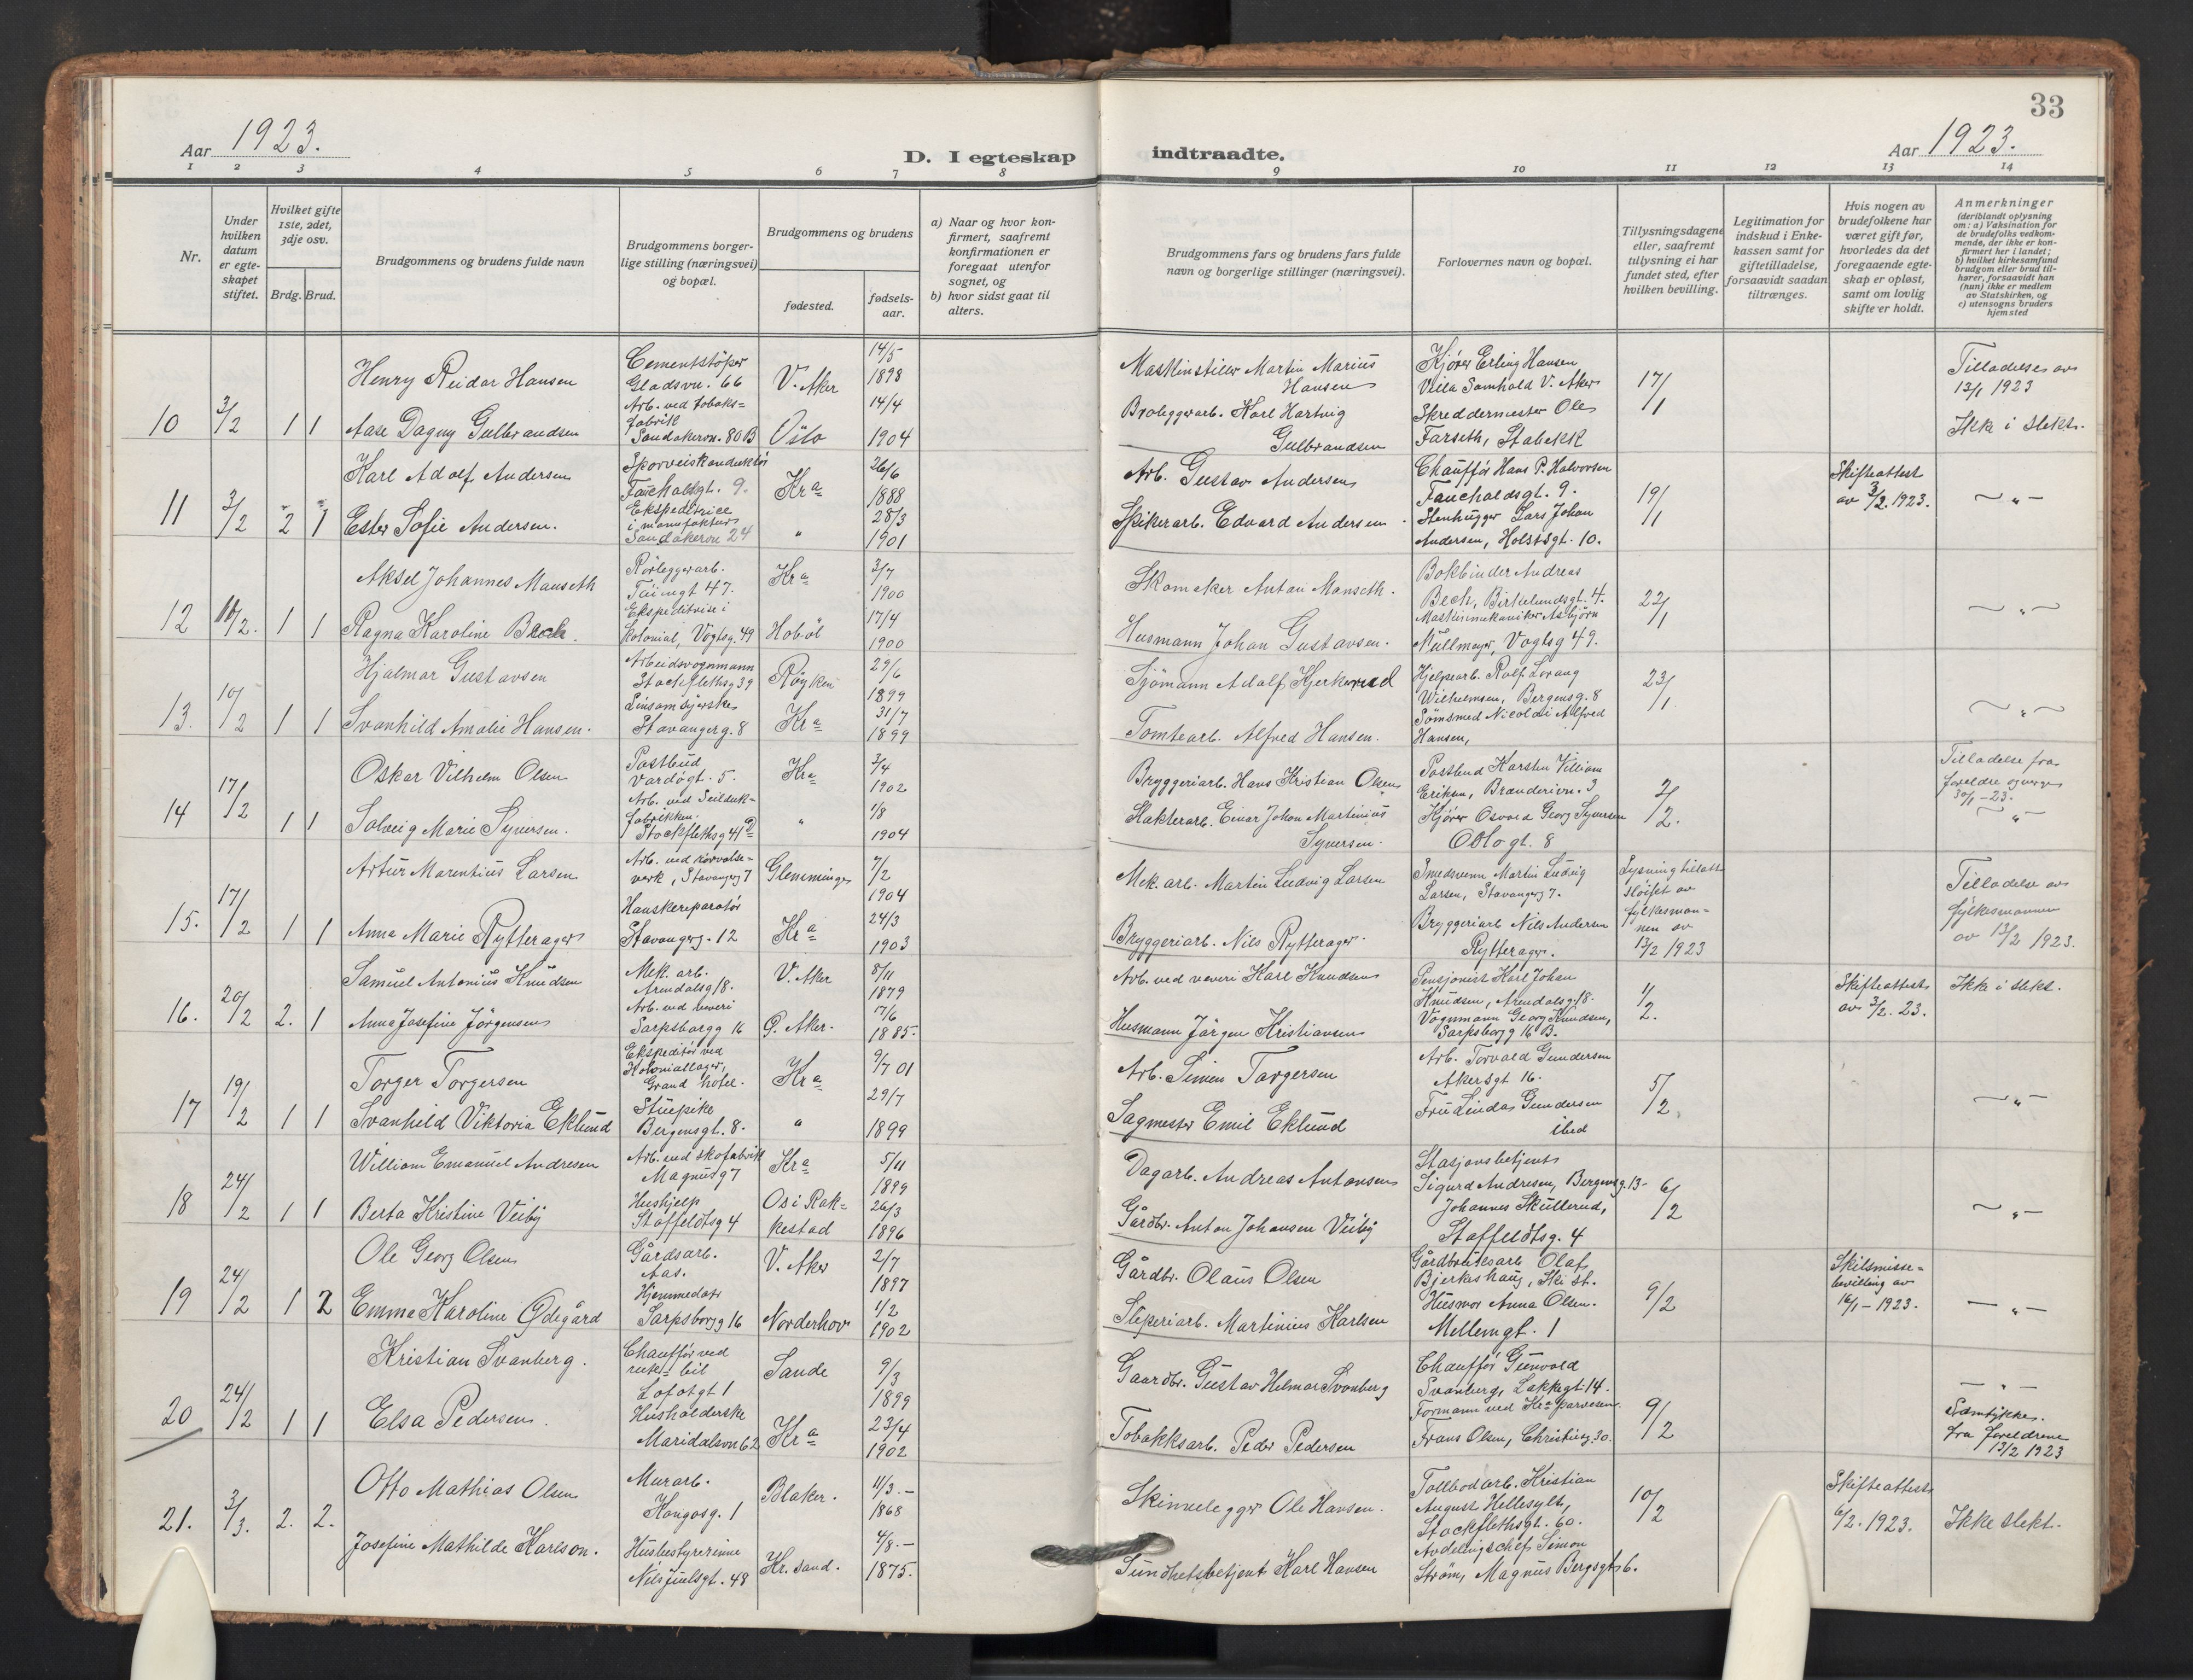 33
Aar 1923.
D. I egteskap
indtraadte.
Aar 1923.
1 2 3 4 5 6 7 8 9 10 11 12 13 14
Nr.
Under hvilken datum er egte-skapet stiftet.
Hvilket gifte 1ste, 2det, 3dje osv.
Brdg. Brud.
Brudgommens og brudens fulde navn
Brudgommens borger-lige stilling (næringsvei) og bopæl.
Brudgommens og brudens
fødested.
fødsels-aar.
a) Naar og hvor kon-firmert, saafremt konfirmationen er foregaat utenfor sognet, og
b) hvor sidst gaat til alters.
Brudgommens fars og brudens fars fulde navn og borgerlige stillinger (næringsvei).
Forlovernes navn og bopæl.
Tillysningsdagene eller, saafremt tillysning ei har fundet sted, efter hvilken bevilling.
Legitimation for indskud i Enke-kassen samt for giftetilladelse, forsaavidt saadan tiltrænges.
Hvis nogen av brudefolkene har været gift før, hvorledes da det foregaaende egte-skap er opløst, samt om lovlig skifte er holdt.
Anmerkninger
(deriblandt oplysning om: a) Vaksination for de brudefolks vedkom-mende, der ikke er kon-firmert her i landet; b) hvilket kirkesamfund brudgom eller brud til-hører, forsaavidt han (hun) ikke er medlem av Statskirken, og c) utensogns bruders hjemsted
10 3/2 1 1
Henry Reidar Hansen
Cementstöper Gladsvn. 66
V. Aker
14/5 1898
Maskinstiller Martin Marius Hansen
Kjörer Erling Hansen Villa Samhold V. Aker
17/1
Tilladelse av 13/1 1923
Aase Dagny Gulbrandsen
Arb. ved tobaks=fabrik Sandakervn. 80 B
Oslo
14/4 1904
Broleggerarb. Karl Hartvig Gulbrandsen
Skreddermester Ole Farseth, Stabekk
Ikke i slekt.
11 3/2 2 1
Karl Adolf Andersen
Sporveiskonduktör Fauchaldsgt. 9.
Kra
26/6 1888
Arb. Gustav Andersen
Chaufför Hans P. Halvorsen Fauchaldsgt. 9.
19/1
Skifteattest av 3/2. 1923.
— " —
Ester Sofie Andersen.
Ekspeditrice i manufaktur Sandakervn 24
"
28/3 1901
Spikerarb. Edvard Andersen.
Stenhugger Lars Johan Andersen, Holstsgt. 10.
12 10/2. 1 1
Aksel Johannes Manseth
Rörleggerarb. 47.
Kra
3/7 1900
Skomaker Anton Manseth.
Bokbinder Andreas Bech, Birkelundsgt. 4.
22/1
— " —
Ragna Karoline Bech.
Ekspeditrise i Kolonial, Vogtsg. 49
Hoböl
17/4 1900
Husmann Johan Gustavsen.
Maskinmekaniker Asbjörn Müllmayer, Vogtsg 49.
13. 10/2 1 1
Hjalmar Gustavsen
Arbeidsvognmann Stockflethsg 39
Röyken
29/6 1899
Sjömann Adolf Hjerkerud
Hjelpearb. Rolf Lorang Wilhelmsen, Bergensg. 8
23/1
— " —
Svanhild Amalie Hansen.
Linsömsyerske Stavangerg. 8
Kra
31/7 1899
Tomtearb. Alfred Hansen.
Sömsmed Nicolai Alfred Hansen,
14 17/2 1 1
Oskar Vilhelm Olsen
Postbud Vardögt. 5.
Kra
3/4 1902
Bryggeriarb. Hans Kristian Olsen
Postbud Karsten Villiam Eriksen, Brænderivn. 3
2/2.
Tilladelse fra foreldre og verge 30/1 - 23.
Solveig Marie Syversen.
Arb. ved Seilduk=fabrikken. Stockflethsg 41 D
"
1/8 1904
Slakterarb. Einar Johan Martinius Syversen.
Kjörer Osvald Georg Syversen Oslogt. 8
— " —
15. 17/2 1 1
Artur Marentius Larsen
Arb. ved rörvalse=verk, Stavangerg 7
Glemminge
7/2 1904
Mek. arb. Martin Ludvig Larsen
Smedsvenn Martin Ludvig Larsen, Stavangerg 7.
Lysning tillatt slöifet av fylkesman=nen av 13/2 1923
Tilladelse av fylkesmannen av 13/2 1923.
Anna Marie Rytterager
Hanskereparatör Stavangerg. 12
Kra
24/3 1903
Bryggeriarb. Nils Rytterager.
Bryggeriarb Nils Andersen Rytterager.
16. 20/2 2. 1
Samuel Antonius Knudsen
Mek. arb. Arendalsg 18.
V. Aker
8/11 1879
Arb. ved veveri Karl Knudsen
Pensjonist Karl Johan Knudsen, Arendalsg. 18.
1/2.
Skifteattest av 3/2. 23.
Ikke i slekt.
Anna Josefine Jörgensen
Arb. ved veveri Sarpsborgg 16
Ö. Aker.
17/6 1885.
Husmann Jörgen Kristiansen
Vognmann Georg Knudsen, Sarpsborgg 16 B.
17 19/2 1 1
Torger Torgersen
Ekspeditör ved Koloniallager, Grand hotel.
Kra
9/7 01
Arb. Simen Torgersen
Arb. Torvald Gundersen Akersgt 16.
5/2.
— " —
Svanhild Viktoria Eklund
Stuepike Bergensgt. 8.
"
29/7 1899
Sagmester Emil Eklund
Fru Linda Gundersen ibid
18 24/2 1 1
William Emanuel Andresen
Arb. ved skofabrik Magnusg 7
Kra
5/11 1899
Dagarb. Andreas Antonsen
Stasjonsbetjent Sigurd Andresen, Bergensg. 13-
6/2
— " —
Berta Kristine Veiby
Hushjelp Staffeldtsg 4
Os i Rak=kestad
26/3 1896
Gårdbr. Anton Johansen Veiby
Johannes Skullerud, Staffeldtsg. 4
19 24/2 1 2
Ole Georg Olsen
Gårdsarb. Aas.
V. Aker
2/7 1897
Gårdbr. Olaus Olsen
Gårdbrukerarb Olaf Bjerkeshaug, Ski st.
9/2
Skilsmisse=bevilling av 16/1 - 1923.
— " —
Emma Karoline Ødegård
Hjemmedatr Sarpsborgg 16
Norderhov
1/2 1902
Sliperiarb. Martinius Karlsen
Husmor Anna Olsen. Mellemgt. 1
20 24/2 1 1
Kristian Svanberg.
Chaufför ved bil Lofotgt 1
Sande
9/3 1899
Gaardbr. Gustav Helmar Svanberg
Chaufför Gunvald Svanberg, Lakkegt. 14.
9/2
— " —
Elsa Pedersen.
Husholderske Maridalsvn 62
Kra
23/4 1902
Tobakksarb. Peder Pedersen
Formann ved Kra parvesen Frans Olsen, Christiesg. 30.
Samtykke. fra foreldrene 13/2 1923
21. 3/3. 2. 2.
Otto Mathias Olsen
Murarb. Kongosg. 1
Blaker.
11/3.- 1868
Skinnelegger Ole Hansen.
Tollbodarb. Kristian August Hellesylt, Stockflethsgt. 60.
10/2
Skifteattest 6/2. 1923.
Ikke slekt.
Josefine Mathilde Karlson.
Husbestyrerinne Nils Juelsgt. 48
Kr. sand.
4/8.- 1875.
Sundhetsbetjent Karl Hansen
Avdelingschef Simon Ström, Magnus Bergsgt 6.